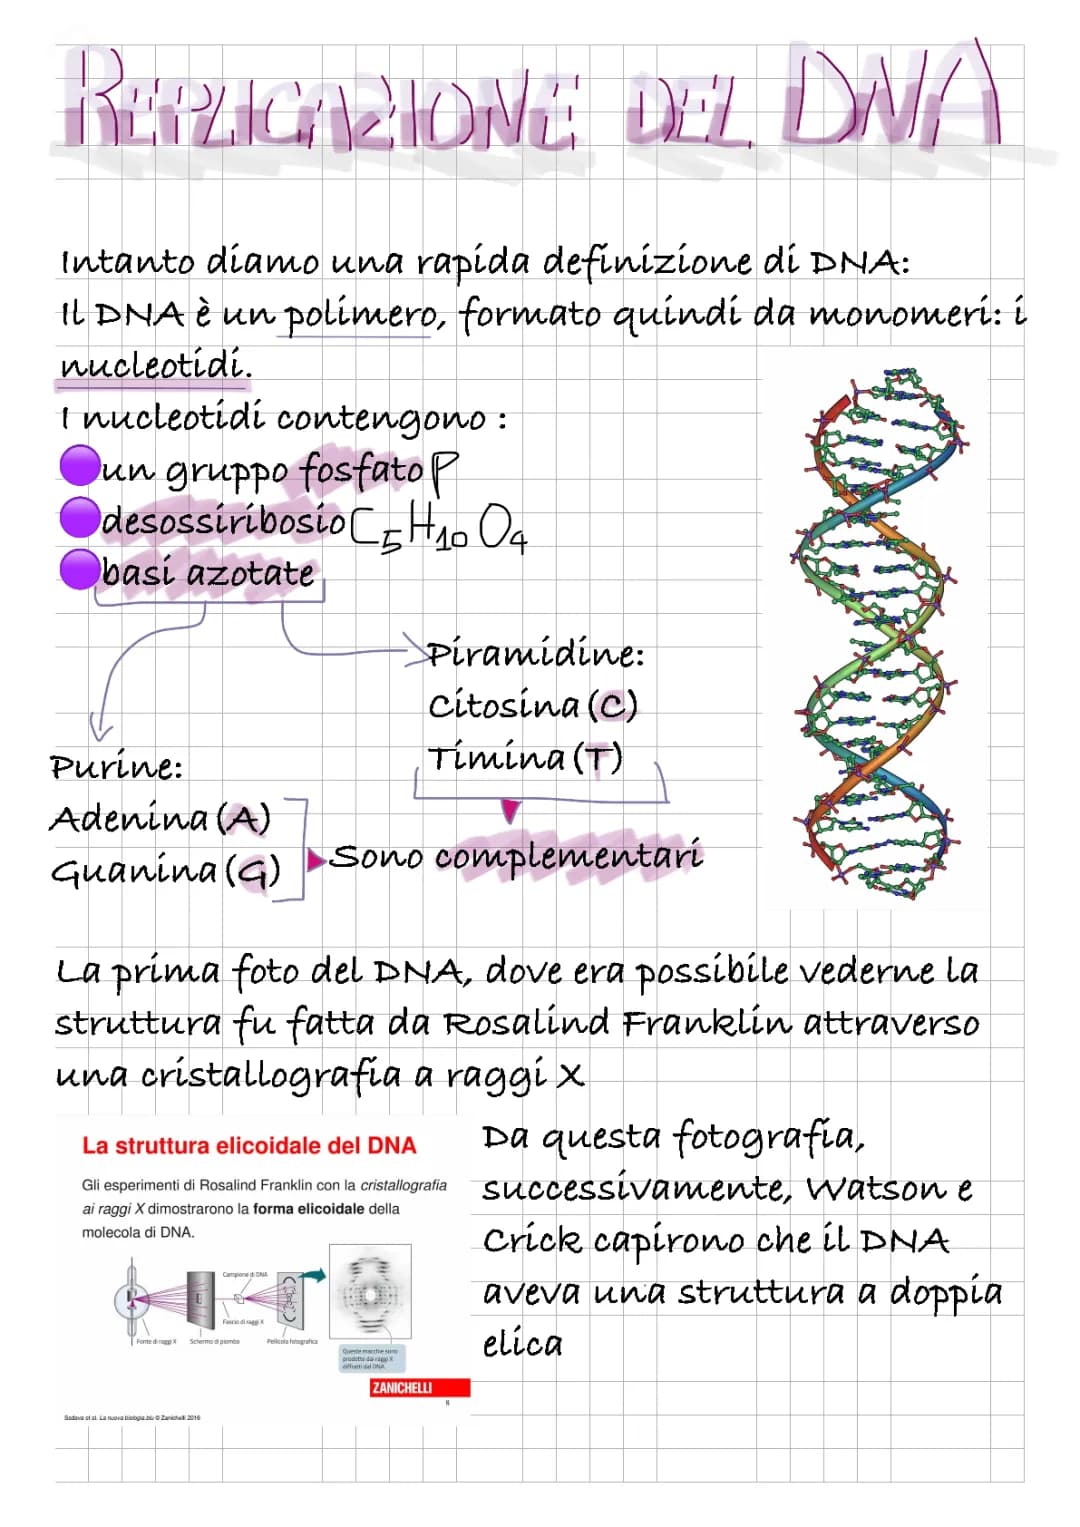 REPLICAZIONE DEL DNA
Intanto diamo una rapida definizione di DNA:
Il DNA è un polimero, formato quindi da monomeri: i
nucleotidi.
I nucleotidi contengono :
un gruppo fosfato P
desossiribosio C5H10O4
basi azotate
Piramidine:
Citosina (C)
Timina (T)
Purine:
Adenina (A)
Guanina (G)
Sono complementari
La prima foto del DNA, dove era possibile vederne la
struttura fu fatta da Rosalind Franklin attraverso
una cristallografia a raggi X
La struttura elicoidale del DNA
Gli esperimenti di Rosalind Franklin con la cristallografia
ai raggi X dimostrarono la forma elicoidale della
molecola di DNA.
Campione di DNA
Fascio di raggi X
Fonte di raggi X
Schermo di piombo
Pellicola fotografica
Queste macchie sono
prodotte dai raggi X
diffusi dal DNA.
ZANICHELLI
Sadava et al. La nuova biologia.blu © Zanichelli 2016
Da questa fotografia,
successivamente, Watson e
Crick capirono che il DNA
aveva una struttura a doppia
elica